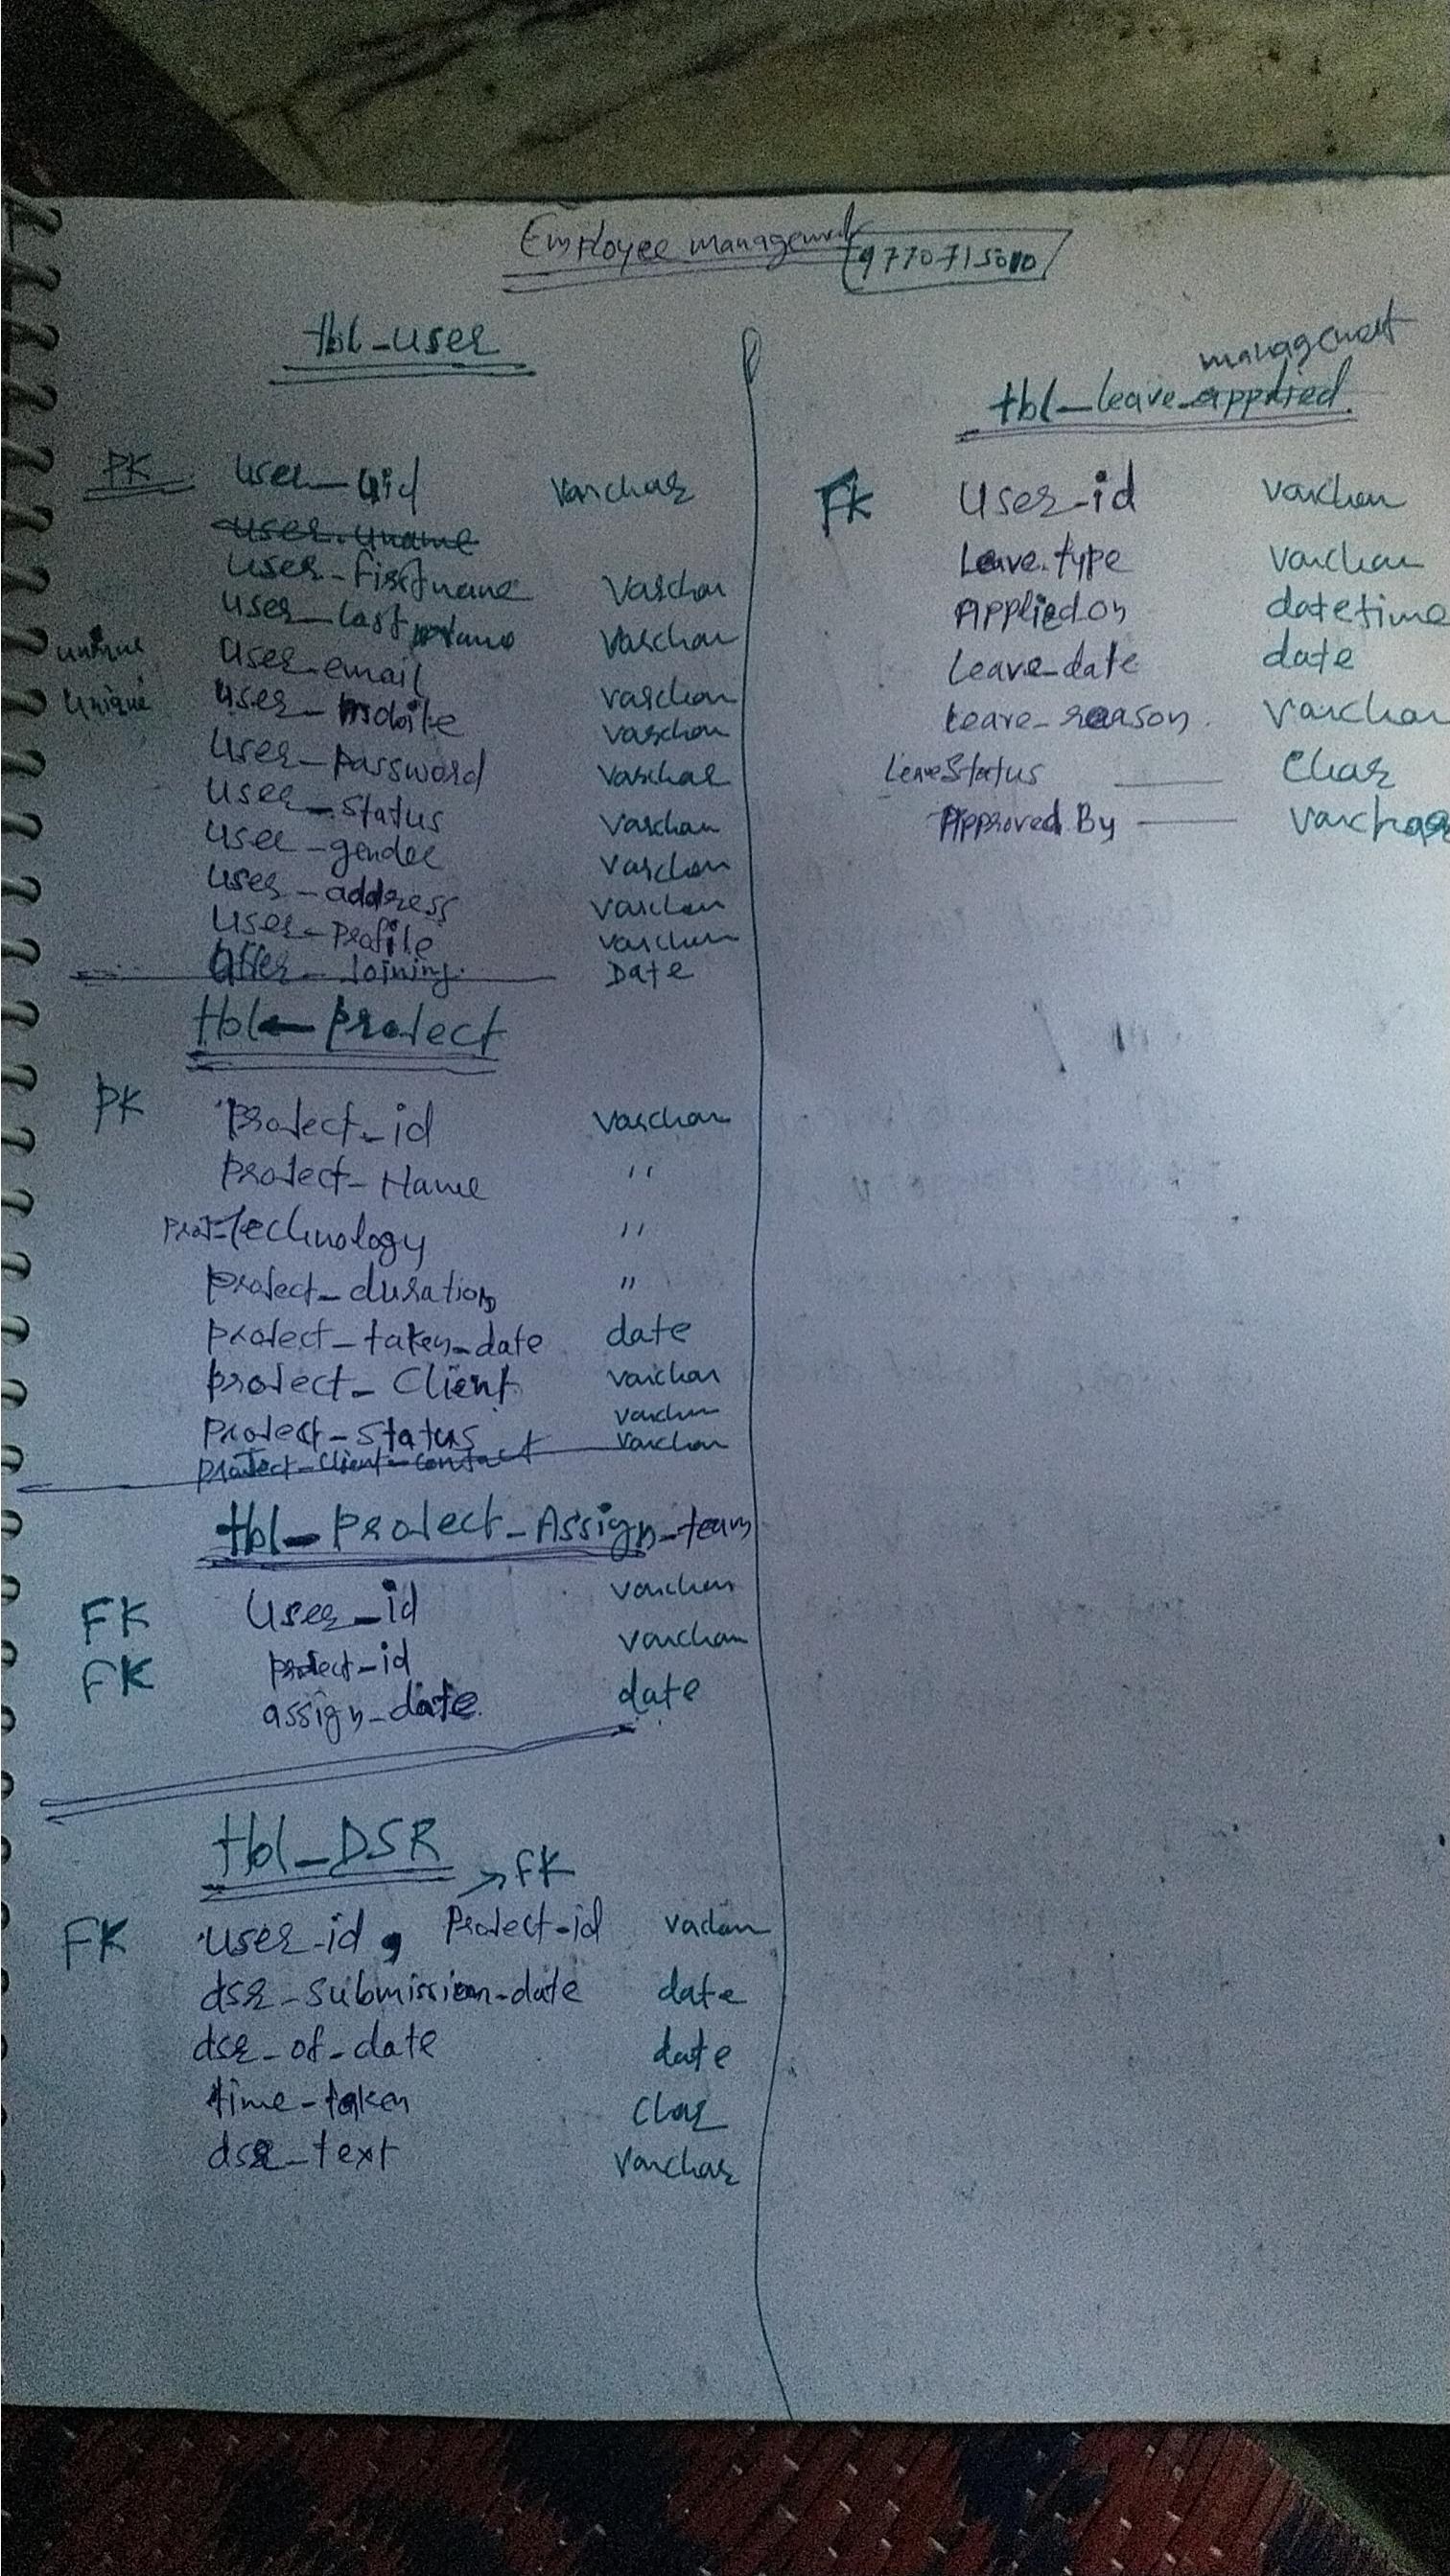 Employee management 9770715010
tbl_user
PK user_uid varchar
user_uname
user_firstname varchar
user_last name varchar
unique user_email varchar
unique user_mobile varchar
user_password varchar
user_status varchar
user_gender varchar
user_address varchar
user_profile varchar
offer_Joining Date
tbl_project
PK project_id varchar
project_Name "
proj_technology "
project_duration "
project_taken_date date
project_Client varchar
project_status varchar
project_client_contact varchar
tbl_project_Assign_team
FK user_id varchar
FK project_id varchar
assign_date date
tbl_DSR
FK
FK user_id, Project_id varchar
dsr_submission_date date
dsr_of_date date
time_taken Char
dsr_text varchar
management
tbl_leave_applied
FK User_id varchar
Leave_type varchar
Applied on datetime
Leave_date date
leave_reason varchar
LeaveStatus Char
Approved By varchar